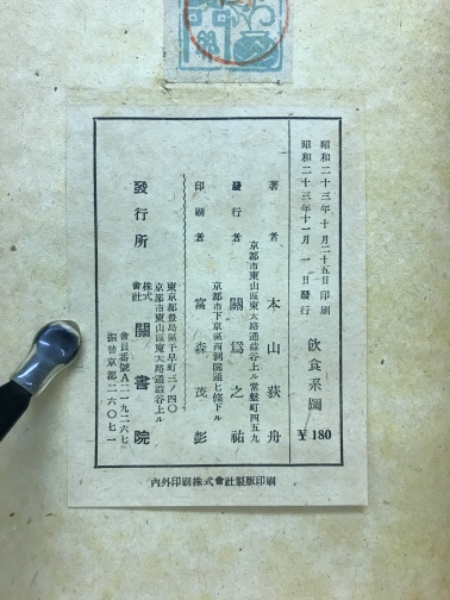 昭和二十三年十月二十五日印刷
昭和二十三年十一月一日發行
飮食系圖
￥180
著者 本山荻舟
京都市東山區東大路通澁谷上ル常盤町四五九
發行者 關爲之祐
京都市下京區西洞院通七條下ル
印刷者 富森茂彭
東京都豊島區千早町三ノ四〇
京都市東山區東大路通澁谷上ル
發行所 株式會社 關書院
會員番號A二一九二六七
振替京都二六〇七一
內外印刷株式會社製版印刷